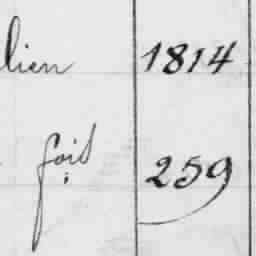 lien 1814
fois 259